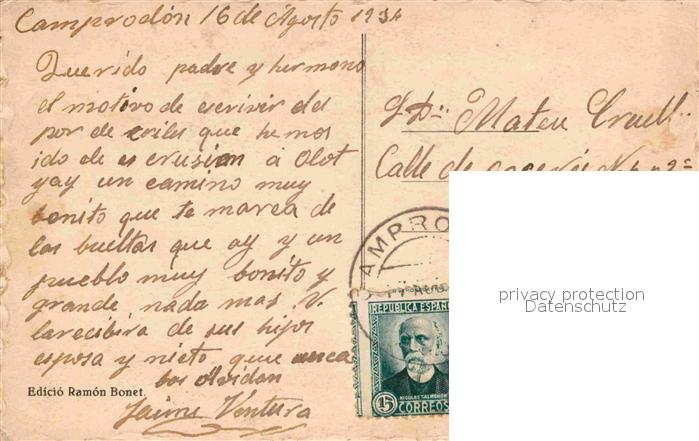 Camprodón 16 de Agosto 1934
Querido padre y hermano
el motivo de escrivir del
por de que hemos
ido de es crusion a Olot
yay un camino muy
bonito que te marea de
las bueltas que ay y un
pueblo muy bonito y
grande nada mas V.
la recibira de sus hijos
esposa y nieto que unca
bos olvidan
Jaime Ventura
Edició Ramón Bonet.
Sr Dn Mateu Cruell
Calle de
CAMPRO
REPUBLICA ESPAÑOL
NICOLAS SALMERON
15 CORREOS
privacy protection
Datenschutz